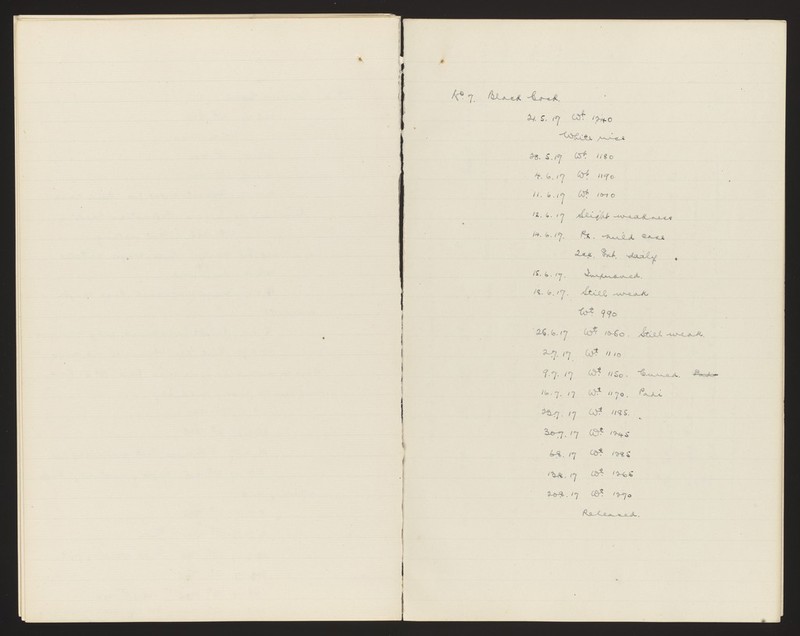 No 7. Black Cock
21.5.17 Wt. 1240
White rice
28.5.17 Wt. 1180
4.6.17 Wt. 1190
11.6.17 Wt. 1020
12.6.17 Slight weakness
14.6.17. Rx. mild case
2cc. Int. daily.
15.6.17. Improved.
18.6.17. Still weak
Wt. 990
25.6.17 Wt. 1050. Still weak
2.7.17 Wt. 1110
9.7.17 Wt. 1150. Cured.
16.7.17 Wt. 1170.
23.7.17 Wt. 1185.
30.7.17 Wt. 1245
6.8.17 Wt. 1285
13.8.17 Wt. 1265
20.8.17 Wt. 1270
Released.